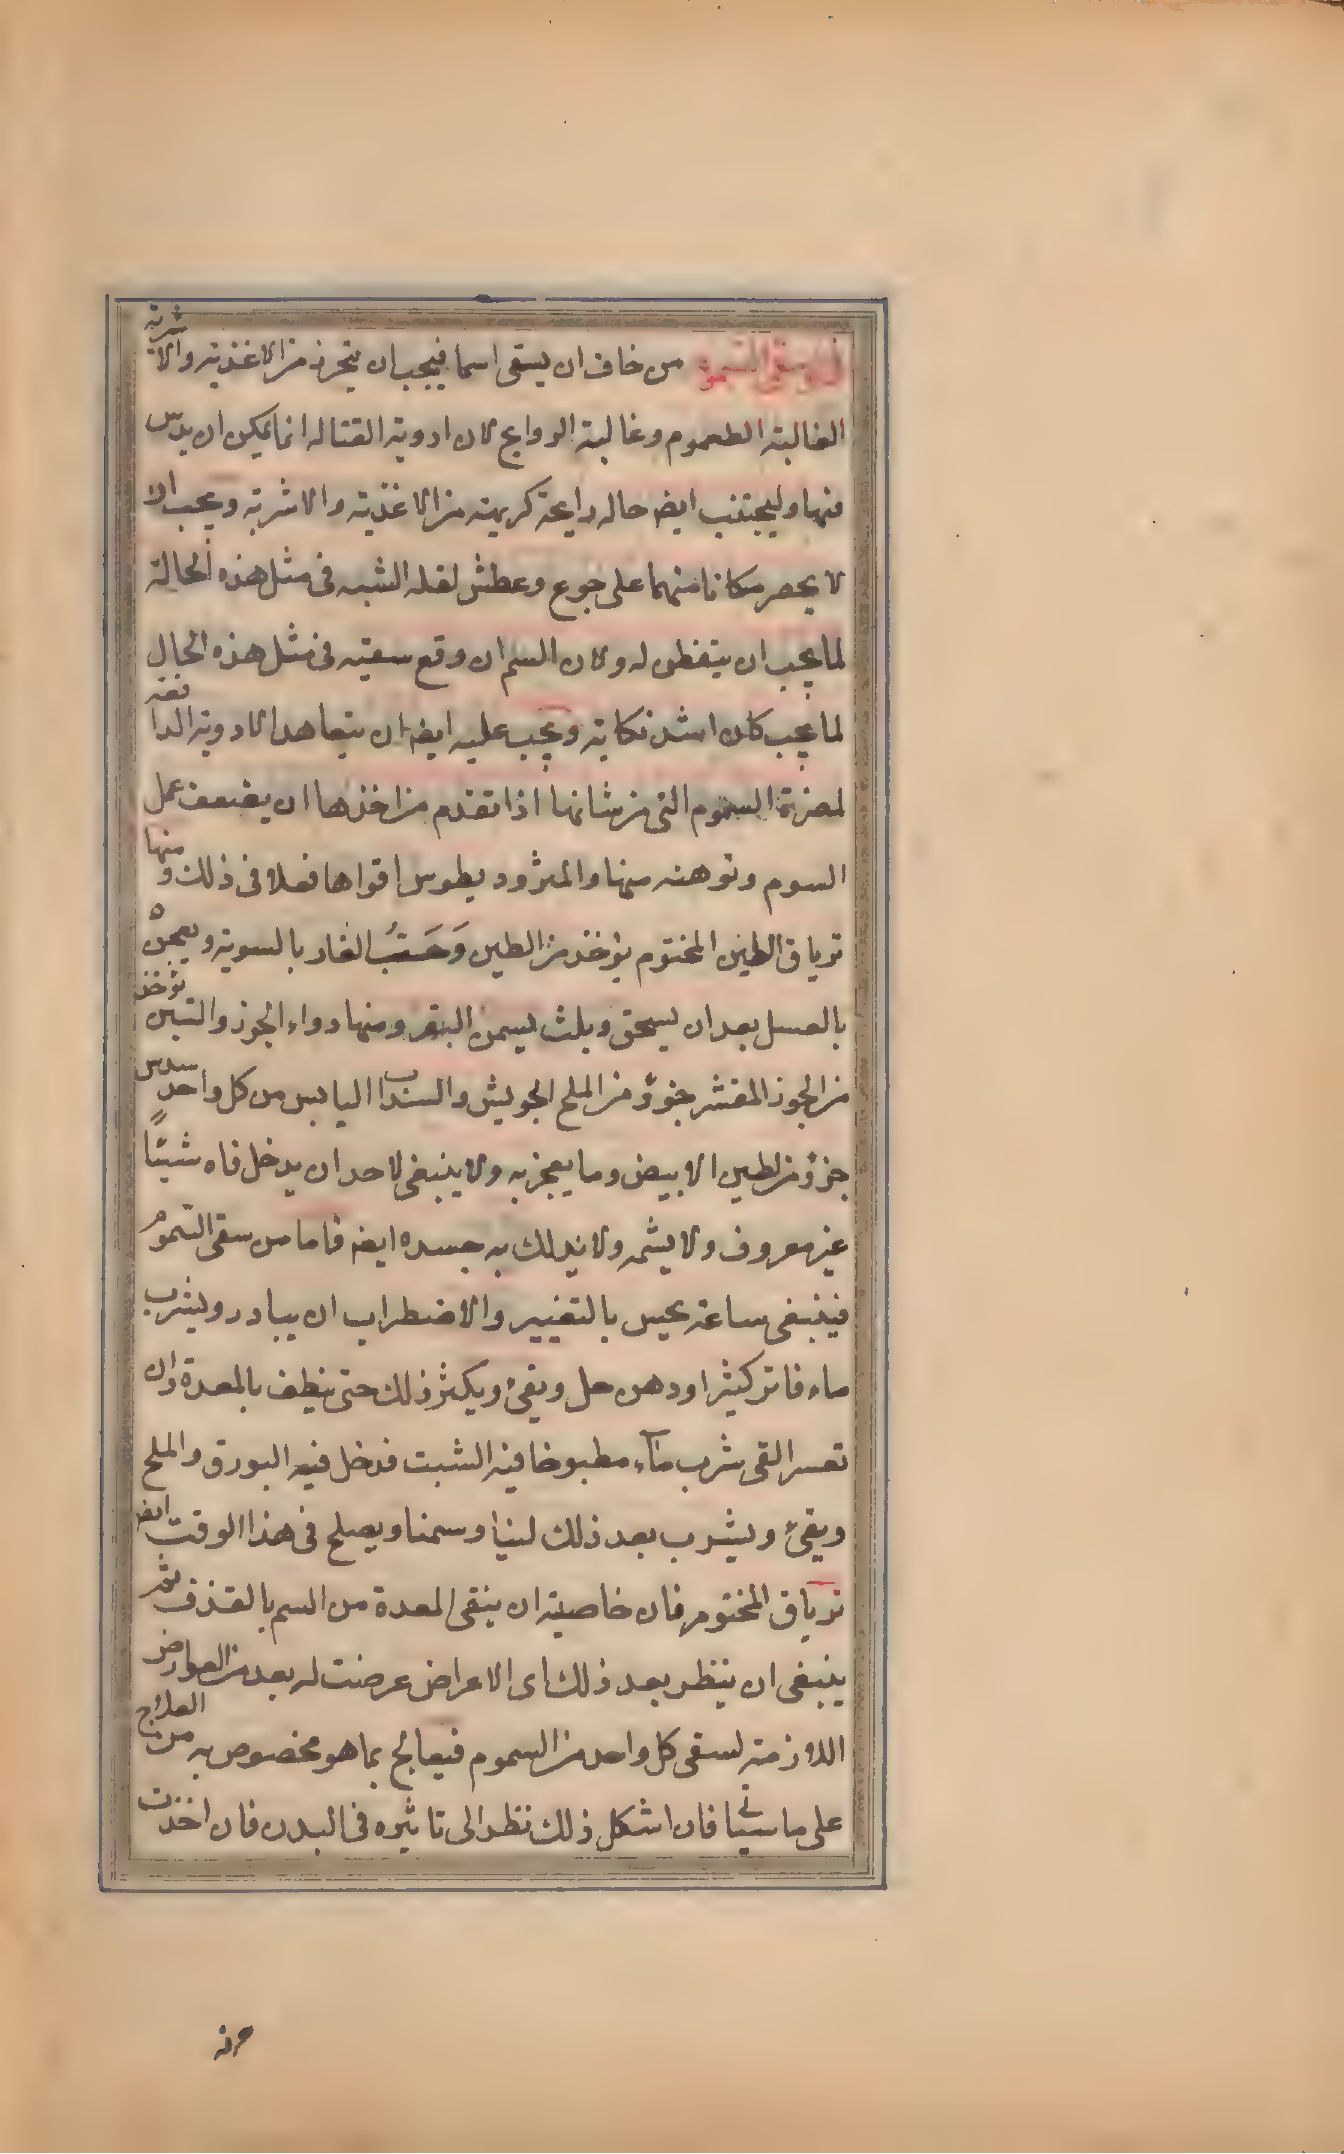 في سقي السموم من خاف ان يسقى اسما فيجب ان يتحرز من الاغذية والاشربة
الغالبة الطعموم وغالبة الروايح لان ادوية القتاله انما يمكن ان يدس
فيها وليجتنب ايضا حاله رايحة كريهة من الاغذية والاشربة ويجب الا
لا يحصر مكانا منهما على جوع وعطش لغله الشبه فى مثل هذه الحالة
لما يجب ان يتفطن له ولان السم ان وقع سقيه فى مثل هذه الحال
لما يجب كان اشد نكاية ويجب عليه ايضا ان يتعاهد الادوية الدافعة
لمضرة السموم التى من شانها اذا تقدم من اخذها ان يضعف عمل
السوم وتوهنه منها والمثرود يطوس اقواها فعلا فى ذلك ومنها
ترياق الطين المختوم يؤخذ من الطين وَحَبُّ الغار بالسوية ويعجن
بالعسل بعد ان يسحق ويلث بسمن البقر ومنها دواء الجوز والتين يؤخذ
من الجوز المقشر جزؤ من الملح الجريش والسنداب اليابس من كل واحد سدس
جزؤ من لطين الابيض وما يعجز به ولا ينبغى لاحد ان يدخل فاه شيئًا
غير معروف ولا يشمه ولا يدلك به جسده ايضا فاما من سقى السموم
فينبغى ساعة يحس بالتغيير والاضطراب ان يبادر ويشرب
ماء فاتر كثيرا ودهن حل ويقئ ويكثر ذلك حتى ينظف بالمعدة وان
تعسر القى شرب مآء مطبوخا فيه الشبت فدخل فيه البورق والملح
ويقئ ويشرب بعد ذلك لبنا وسمنا ويصلح فى هذا الوقت ايضا
ترياق المختوم فان خاصيته ان ينقى المعدة من السم بالقذف ثم
ينبغى ان ينظر بعد ذلك اى الاعراض عرضت له بعد من العوارض
اللازمة لسقى كل واحد من السموم فيعالج بما هو مخصوص به من العلاج
على ما سيأتي فان اشكل ذلك نظر الى تاثيره فى البدن فان اخذت